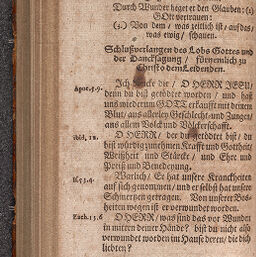 Durch Wunder heget er den Glauben: (2)
GOtt vertrauen:
(3.) Von dem / was zeitlich ist / auf das /
was ewig / schauen.
Schlußverlangen des Lobs Gottes und
der Dancksagung / fürnemlich zu
Christo dem Leidenden.
Ich dancke dir / O HERR JESU /
Apoc. 5.9.
denn du bist getödtet worden / und hast
uns wiederum GOTT erkaufft mit deinem
Blut / aus allerley Geschlecht und Zungen /
aus allem Volck und Völckerschafft.
ibid, 12.
O HERR / der du getödtet bist / du
bist würdig zunehmen Krafft und Gottheit /
Weißheit und Stärcke / und Ehr und
Preiß und Benedeyung.
Es. 53.4.
Warlich / Er hat unsere Kranckheiten
auf sich genommen / und er selbst hat unsere
Schmertzen getragen. Von unserer Bos-
heiten wegen ist er verwundet worden.
Zach. 13.6
O HERR / was sind das vor Wunden
in mitten deiner Hände? bist du nicht also
verwundet worden im Hause deren / die dich
liebten?